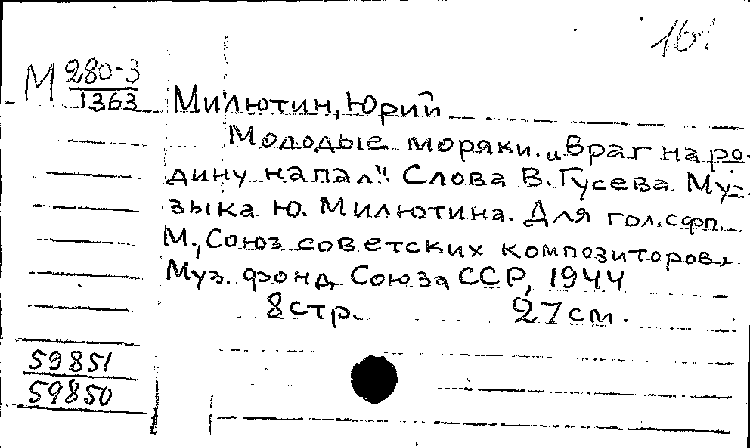 М 280-3
1363
Милютин, Юрий
Молодые моряки. „Враг на ро-
дину напал“. Слова В. Гусева. Му-
зыка Ю. Милютина. Для гол. с фп.
М., Союз советских композиторов.
Муз. фонд Союза ССР, 1944
8 стр. 27 см.
59851
59850